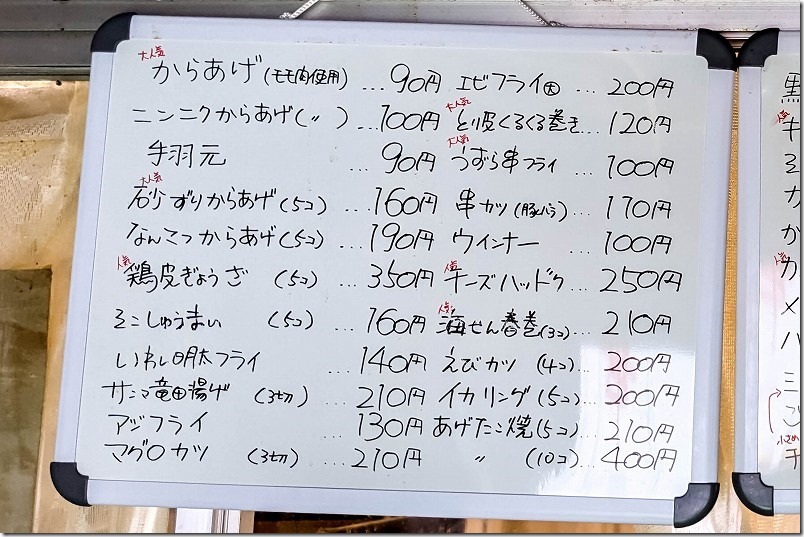 大人気
からあげ(モモ肉使用) ...90円
ニンニクからあげ(〃) ...100円
手羽元 ...90円
大人気
砂ずりからあげ(5コ) ...160円
なんこつからあげ(5コ) ...190円
人気
鶏皮ぎょうざ (5コ) ...350円
えこしゅうまい (5コ) ...160円
いわし明太フライ ...140円
サンマ竜田揚げ (3切) ...210円
アジフライ ...130円
マグロカツ (3切) ...210円
エビフライ大 ...200円
大人気
とり皮くるくる巻き...120円
大人気
うずら串フライ ...100円
串カツ(豚バラ) ...170円
ウインナー ...100円
人気
チーズハッドク ...250円
人気
海せん春巻(3コ) ...210円
えびカツ (4コ) ...200円
イカリング(5コ)...200円
あげたこ焼(5コ)...210円
〃 (10コ)...400円